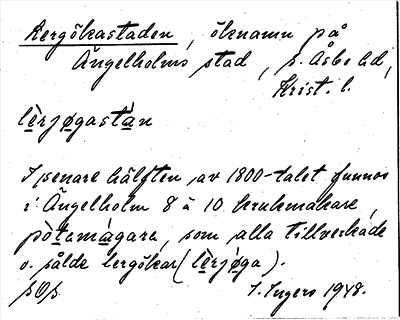 Lergökastaden, öknamn på
Ängelholms stad, s. Åsbo hd,
Krist. l.
lèrjøgastán
I senare hälften av 1800-talet funnos
i Ängelholm 8 à 10 krukmakare,
pòtamágare, som alla tillverkade
o. sålde lergökar (lèrjøga).
I. Ingers 1948.